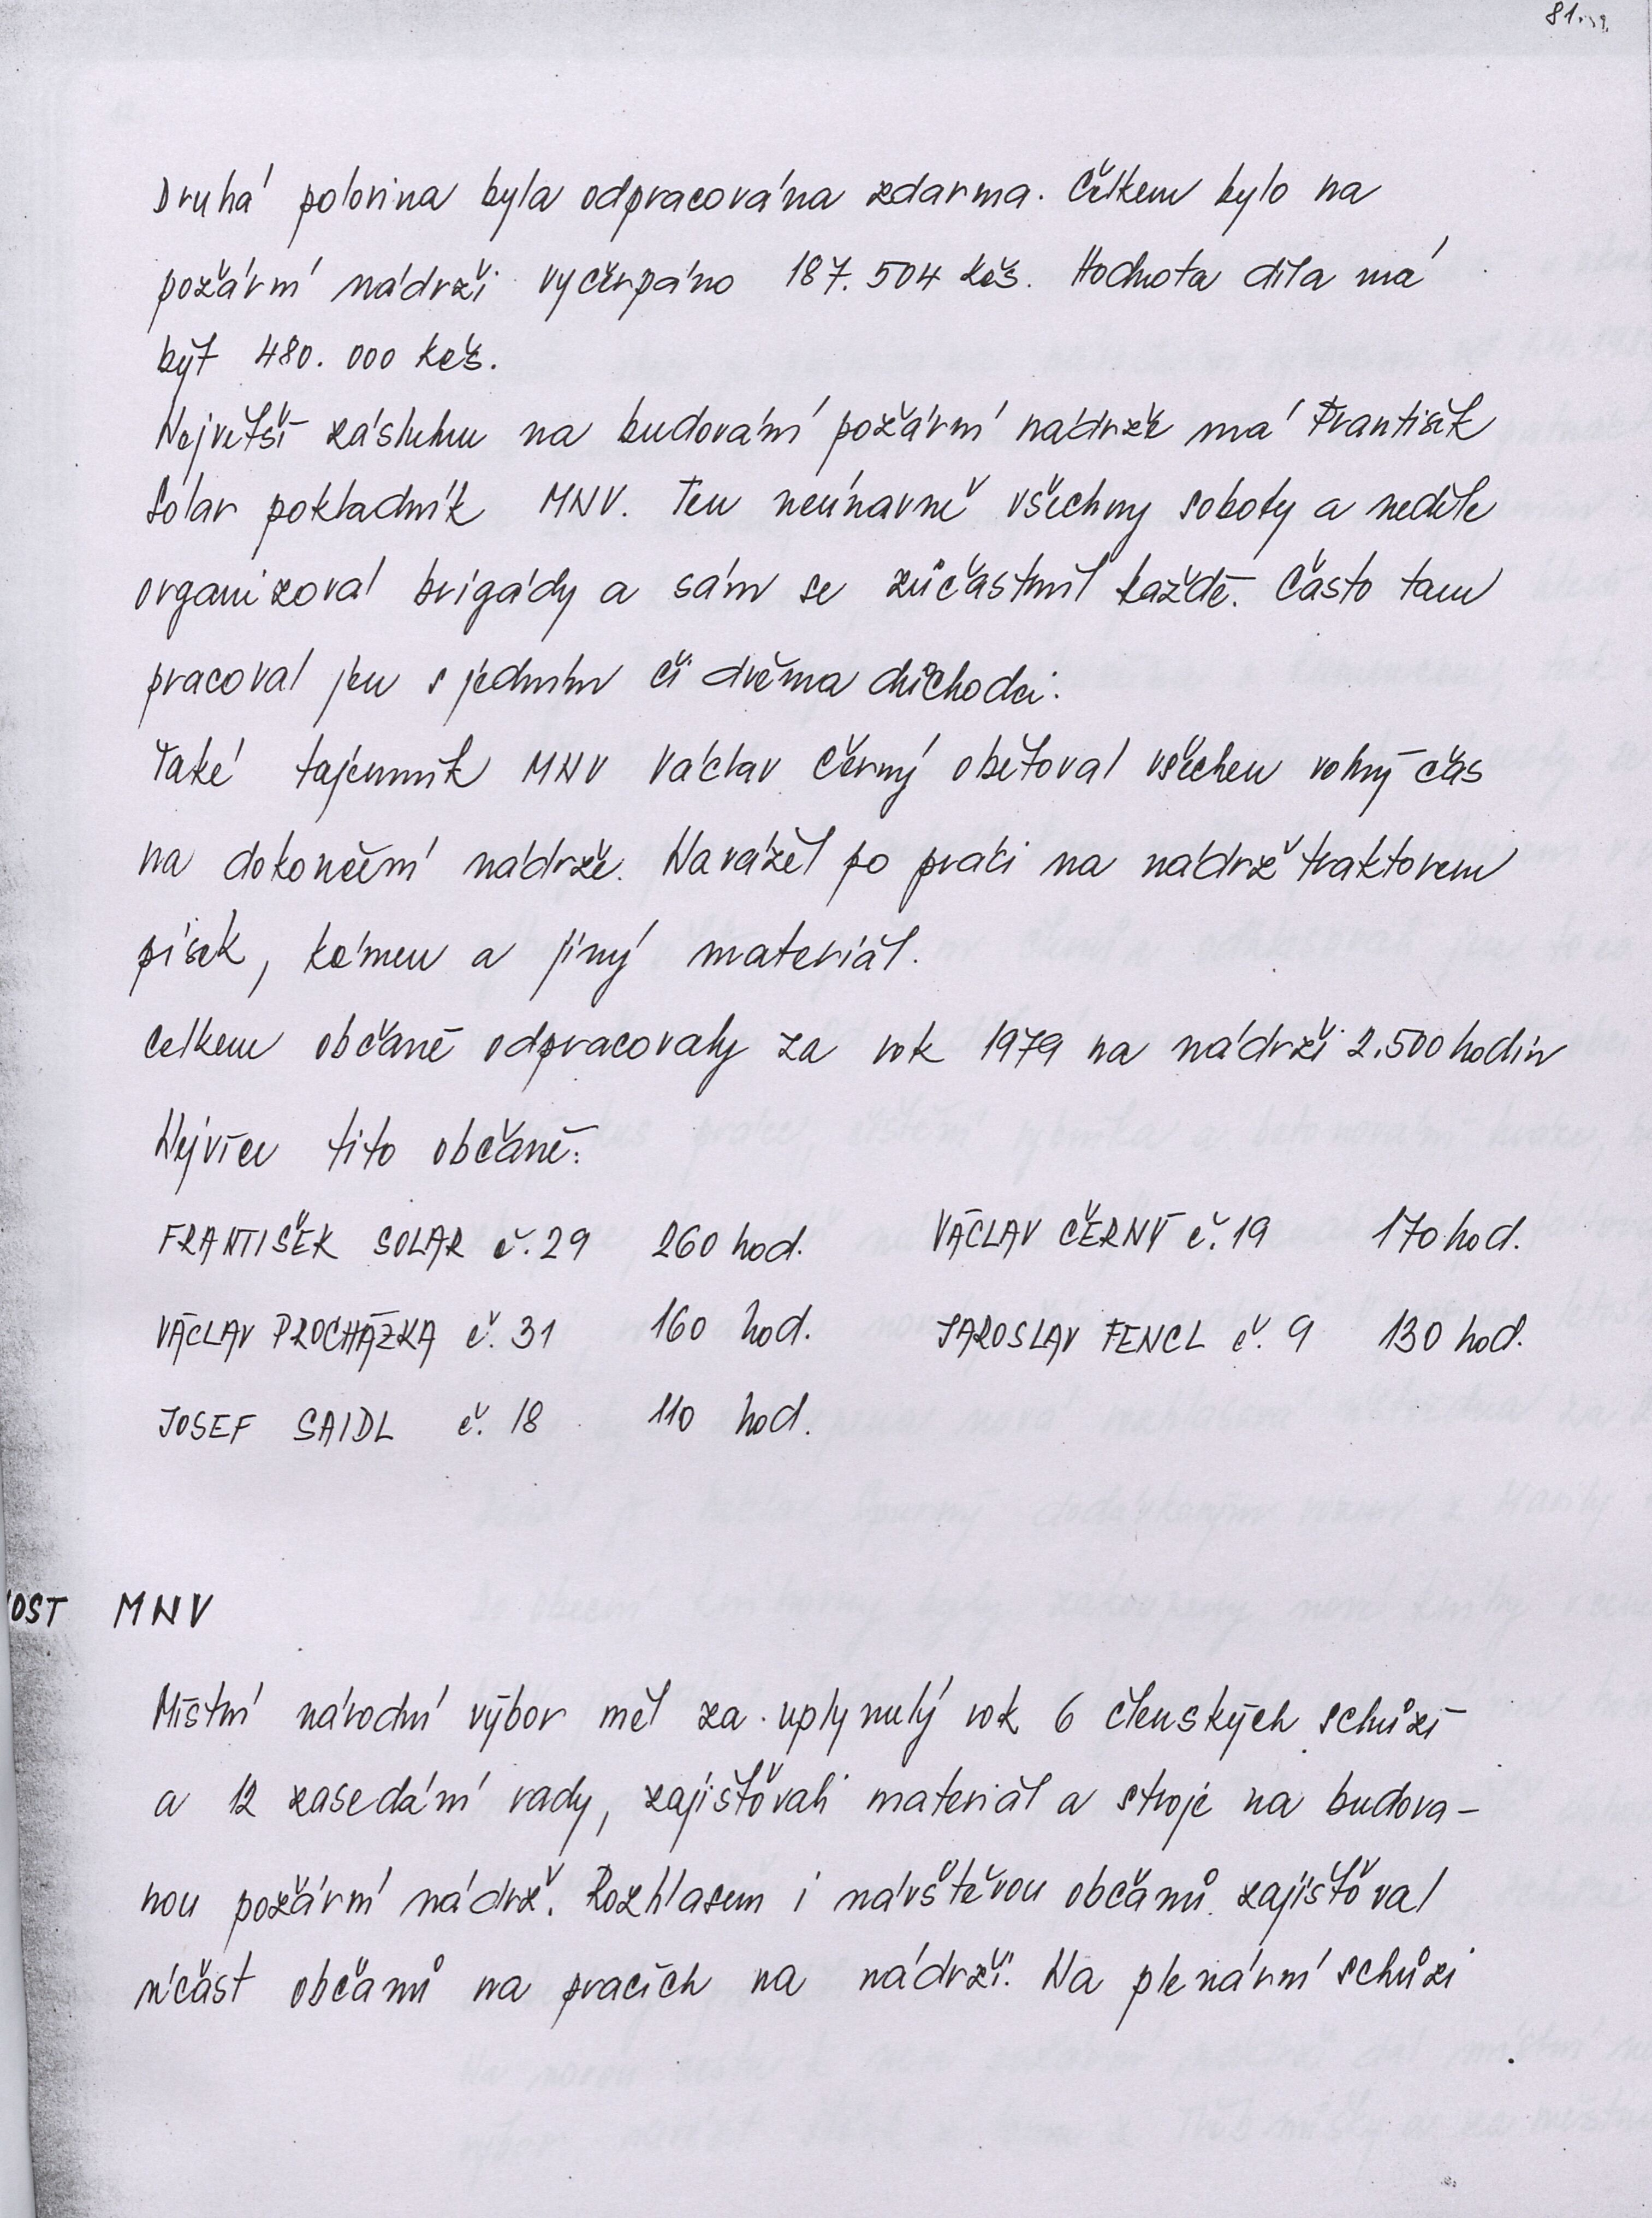 81.
Druhá polovina byla odpracována zdarma. Celkem bylo na
požární nádrži vyčerpáno 187.504 Kčs. Hodnota díla má
být 480.000 Kčs.
Největší zásluhu na budování požární nádrže má František
Solar pokladník MNV. Ten neúnavně všechny soboty a neděle
organizoval brigády a sám se zúčastnil každé. Často tam
pracoval jen s jedním či dvěma důchodci.
Také tajemník MNV Václav Černý obětoval všechen volný čas
na dokončení nádrže. Navážel po práci na nádrž traktorem
písek, kámen a jiný materiál.
Celkem občané odpracovaly za rok 1979 na nádrži 2.500 hodin
Nejvíce tito občané:
FRANTIŠEK SOLAR č. 29 260 hod. VÁCLAV ČERNÝ č. 19 170 hod.
VÁCLAV PROCHÁZKA č. 31 160 hod. JAROSLAV FENCL č. 9 130 hod.
JOSEF SAIDL č. 18 110 hod.
OST MNV
Místní národní výbor měl za uplynulý rok 6 členských schůzí
a 12 zasedání rady, zajišťovali materiál a stroje na budova-
nou požární nádrž. Rozhlasem i návštěvou občanů zajišťoval
účast občanů na pracích na nádrži. Na plenární schůzi